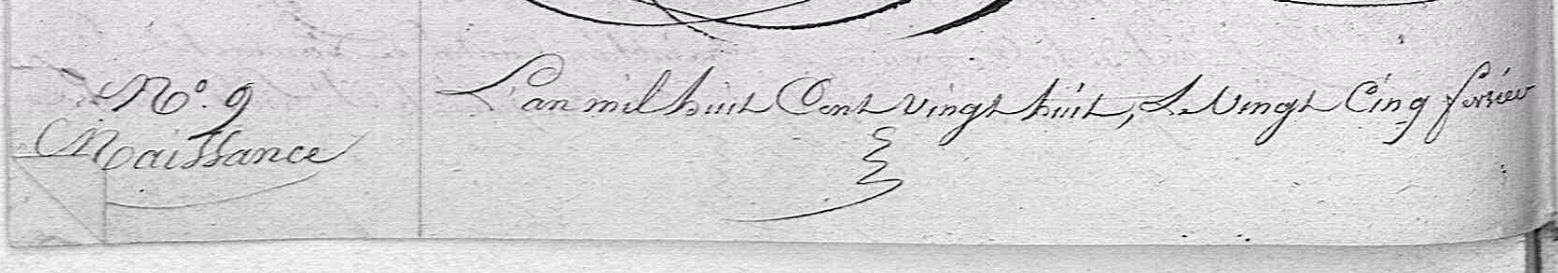 N.º 9
Naissance
L'an mil huit Cent vingt huit, Le Vingt Cinq fevrier